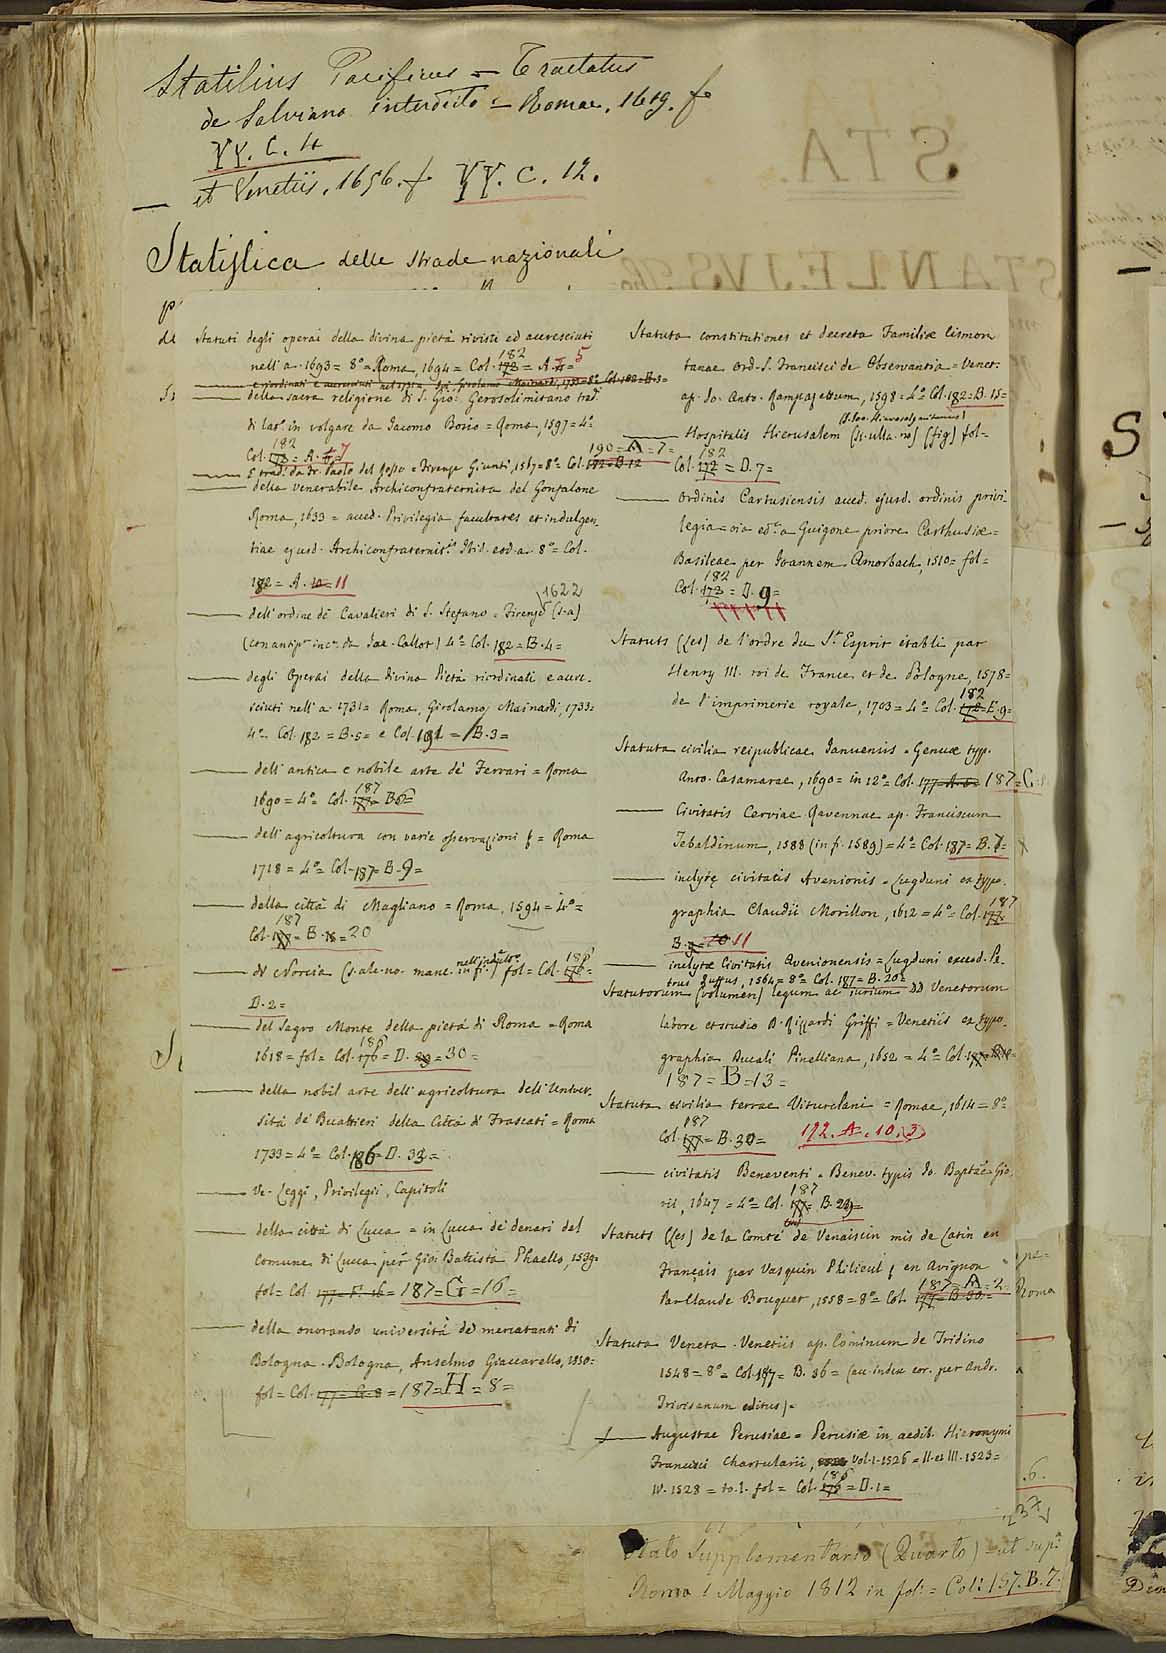 Statilius Pacificus = Tractatus
de Salviano interdicto = Romae, 1619. f.
YY. C. 4
— et Venetiis, 1656. f. YY. C. 12.
Statistica delle strade nazionali
Statuti degli operai della divina pietà rivisti ed accresciuti
nell'a. 1693 = 8.º = Roma, 1694 = Col. 182 = A = 5
—— della sacra religione di S. Gio: Gerosolimitano trad.
di lat.º in volgare da Iacomo Bosio = Roma, 1597 = 4.º
Col. 182 = A. 7
—— E trad. da Fr. Paolo del Rosso = Firenze Giunti, 1567 = 8.º Col. 190 = A = 7 =
—— della venerabile Archiconfraternita del Gonfalone
Roma, 1633 = acced. Privilegia, facultates et indulgen-
tiae ejusd. Archiconfraternit.s Ibid. eod. a. 8.º = Col.
182 = A. 11
—— dell'ordine de Cavalieri di S. Stefano = Firenze (s. a) 1622
(con antip. inc. da Jac. Callot) 4.º Col. 182 = B. 4 =
—— degli Operai della divina Pietà riordinati e accre-
sciuti nell'a. 1731 = Roma, Girolamo Mainardi, 1733 =
4.º Col. 182 = B. 5 = e Col. 191 = B. 3 =
—— dell'antica e nobile arte de' Ferrari = Roma
1690 = 4.º = Col. 187 = B 6 =
—— dell'agricoltura con varie osservazioni f = Roma
1718 = 4.º = Col. 187 = B. 9 =
—— della città di Magliano = Roma, 1594 = 4.º =
Col. 187 = B. 20
—— di Norcia (s. al. no. manc. in fi.) fol = Col. 186 =
D. 2 =
—— del Sagro Monte della pietà di Roma = Roma
1618 = fol = Col. 186 = D. 30 =
—— della nobil arte dell'agricoltura dell'Univer-
sità de' Buattieri della Città di Frascati = Roma
1733 = 4.º = Col. 186 = D. 33 =
—— Ve. Leggi, Privilegii, Capitoli
—— della città di Lucca = in Lucca dè denari del
Comune di Lucca per Gio: Battista Phaello, 1539 =
fol = Col. 177 = F. 16 = 187 = G = 16 =
—— della onoranda università dei mercatanti di
Bologna. Bologna, Anselmo Giaccarello, 1550 =
fol = Col. 177 = G. 8 = 187 = H = 8 =
Statuta constitutiones et decreta Familiae Cismon
tanae Ord. S. Francisci de Observantia = Venet.
ap. Jo. Anto. Rampazettum, 1598 = 4.º Col. 182 = B. 15 =
—— Hospitalis Hierusalem (s. ulla. no) (fig) fol =
Col. 182 = D. 7 =
—— Ordinis Cartusiensis acced. ejusd. ordinis privi-
legia = oia ed. a Guigone priore Carthusiae =
Basileae per Ioannem Amorbach, 1510 = fol =
Col. 182 = D. 9 =
Statuts (Les) de l'ordre du S.t Esprit établi par
Henry III. roi de France et de Pologne, 1578 =
de l'imprimerie royale, 1703 = 4.º = Col. 182 = E. 9 =
Statuta civilia reipublicae Ianuensis = Genuae typ.
Anto. Casamarae, 1690 = in 12.º = Col. 177 = A. 187 = C =
—— Civitatis Cerviae Ravennae ap. Franciscum
Tebaldinum, 1588 (in f. 1589) = 4.º = Col. 187 = B. 7 =
—— inelytę civitatis Avenionis = Lugduni ex typo-
graphia Claudii Morillon, 1612 = 4.º = Col. 187
B. 11
—— inelytae Civitatis Avenionensis = Lugduni excud. Pe-
trus , 1564 = 8.º = Col. 187 = B. 20 =
Statutorum (volumen) legum ac iurium DD Venetorum
labore et studio D. Rizzardi Griffi = Venetiis ex typo-
graphia Ducali Pinelliana, 1652 = 4.º = Col.
187 = B = 13 =
Statuta civilia terrae Viturclani = Romae, 1614 = 8.º =
Col. 187 = B. 30 = 192. A. 10. (3)
—— civitatis Beneventi = Benev. typis Jo. Baptae Gio
rii, 1647 = 4.º = Col. 187 = B. 29 =
Statuts (Les) de la Comté de Venaiscin mis de Latin en
Français par Vasquin Philieul f en Avignon
Par Claude Bouquet, 1558 = 8.º = Col. 187 = A = 2
Statuta Veneta. Venetiis ap. Cominum de Tridino
1548 = 8.º = Col. 187 = B. 36 = (au. index cor. per Andr.
Trivisanum editus) =
—— Augustae Perusiae = Perusiae in aedib. Hieronymi
Francisci Chartularii, Vol. I. 1526 = II. et III. 1523 =
IV. 1528 = to. I. fol = Col. 186 = D. 1 =
Stato Supplementario (Quarto) = ut sup.
Roma 1 Maggio 1812 in fol: = Col: 157. B. 7.